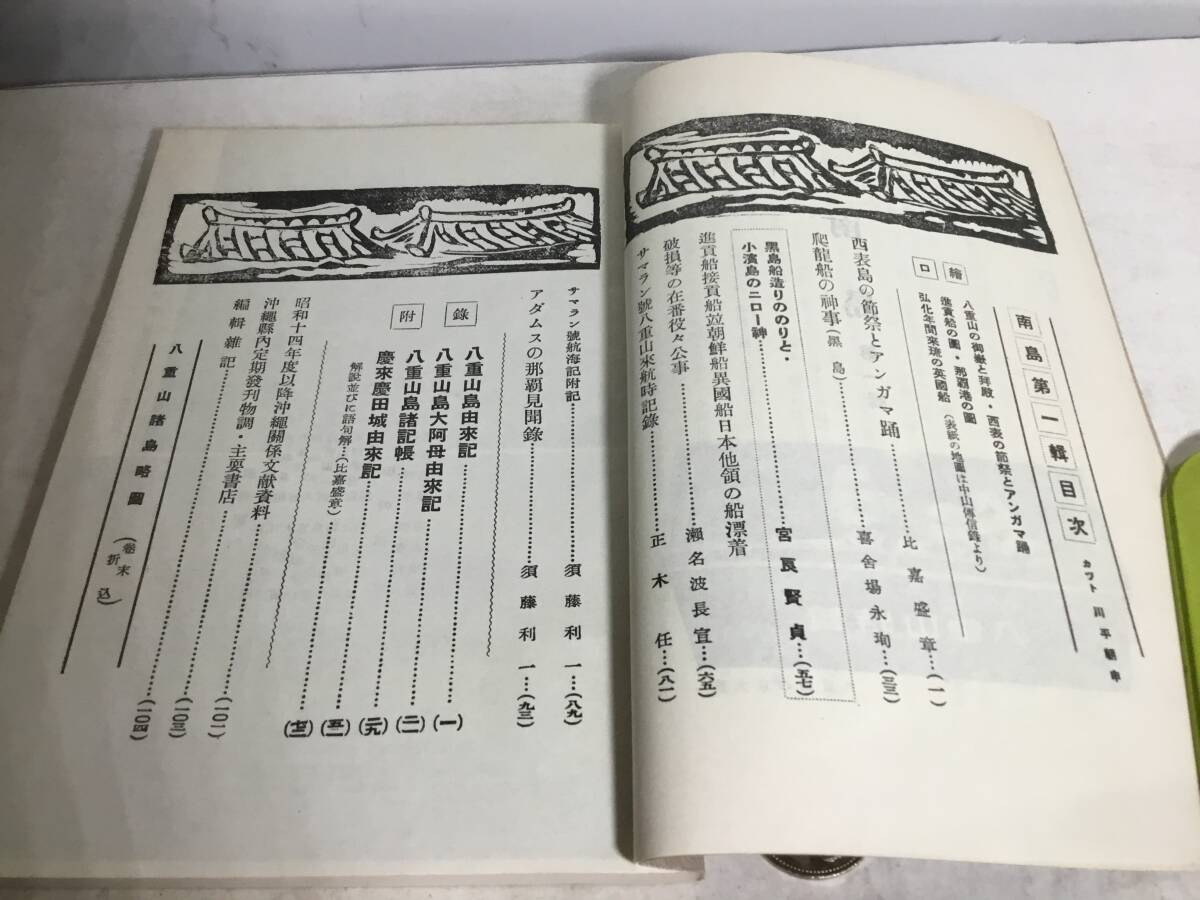 南島第一輯目次
カツト 川平朝申
繪口
八重山の御嶽と拜殿・西表の節祭とアンガマ踊
進貢船の圖・那覇港の圖
弘化年間來琉の英國船(表紙の地圖は中山傳信錄より)
西表島の節祭とアンガマ踊……比嘉盛章…(一)
爬龍船の神事(黒島)……喜舍場永珣…(三三)
黑島船造りののりと・
小濱島のニロー神……宮良賢貞…(五七)
進貢船接貢船竝朝鮮船異國船日本他領の船漂着
破損等の在番役々公事……瀬名波長宣…(六五)
サマラン號八重山來航時記錄……正木任…(八一)
サマラン號航海記附記……須藤利一…(八九)
アダムスの那覇見聞錄……須藤利一…(九三)
附錄
八重山島由來記……(一)
八重山島大阿母由來記……(二)
八重山島諸記帳……(二九)
慶來慶田城由來記……(五二)
解說並びに語句解…(比嘉盛章)……
昭和十四年度以降沖繩關係文獻資料……
沖繩縣內定期發刊物調・主要書店……(一〇一)
編輯雜記……(一〇三)
八重山諸島略圖(卷末折込)……(一〇四)